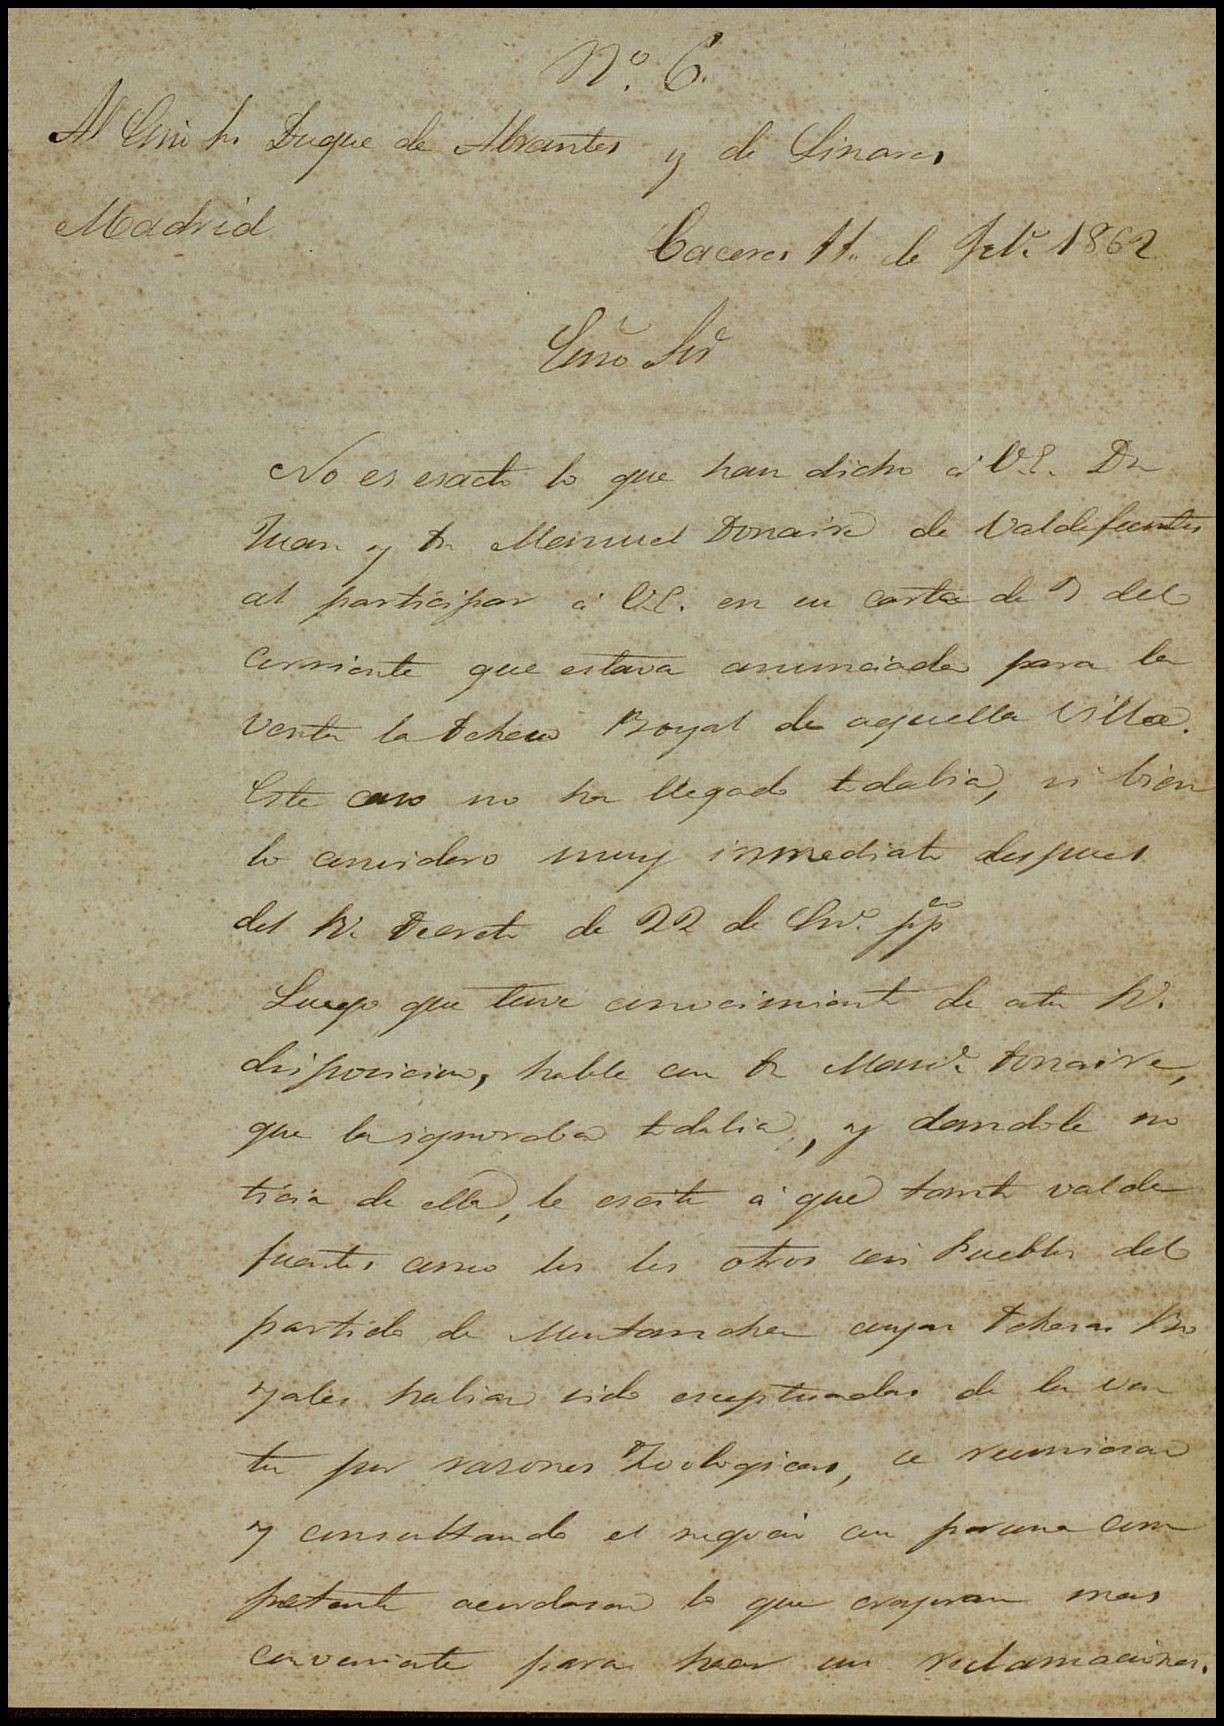 Nº. 6.
Al Excmo Sr Duque de Abrantes y de Linares
Madrid
Caceres 11. de Feb.º 1862
Excmo Sr
No es esacto lo que han dicho á V.E. Dn
Juan y Dn Manuel Donaire de Valdefuentes
al participar á V.E. en su carta de 7 del
corriente que estava anunciada para la
venta la dehesa Boyal de aquella villa.
Este caso no ha llegado todabia, si bien
lo considero muy inmediato despues
del Rl. Decreto de 22 de En.º ppdo
Luego que tuve conocimiento de esta Rl.
disposicion, hable con Dn Manl. Donaire,
que la ignoraba todabia, y dandole no
ticia de ella, le escité á que tanto valde
fuentes como los los otros seis Pueblos del
partido de Montanchez cuyas dehesas Bo
yales habian sido esceptuadas de la ven
ta por razones Zoologicas, se reunieran
y consultando el negocio con persona com
petente acordasen lo que creyeran mas
conveniente para hacer sus reclamaciones.